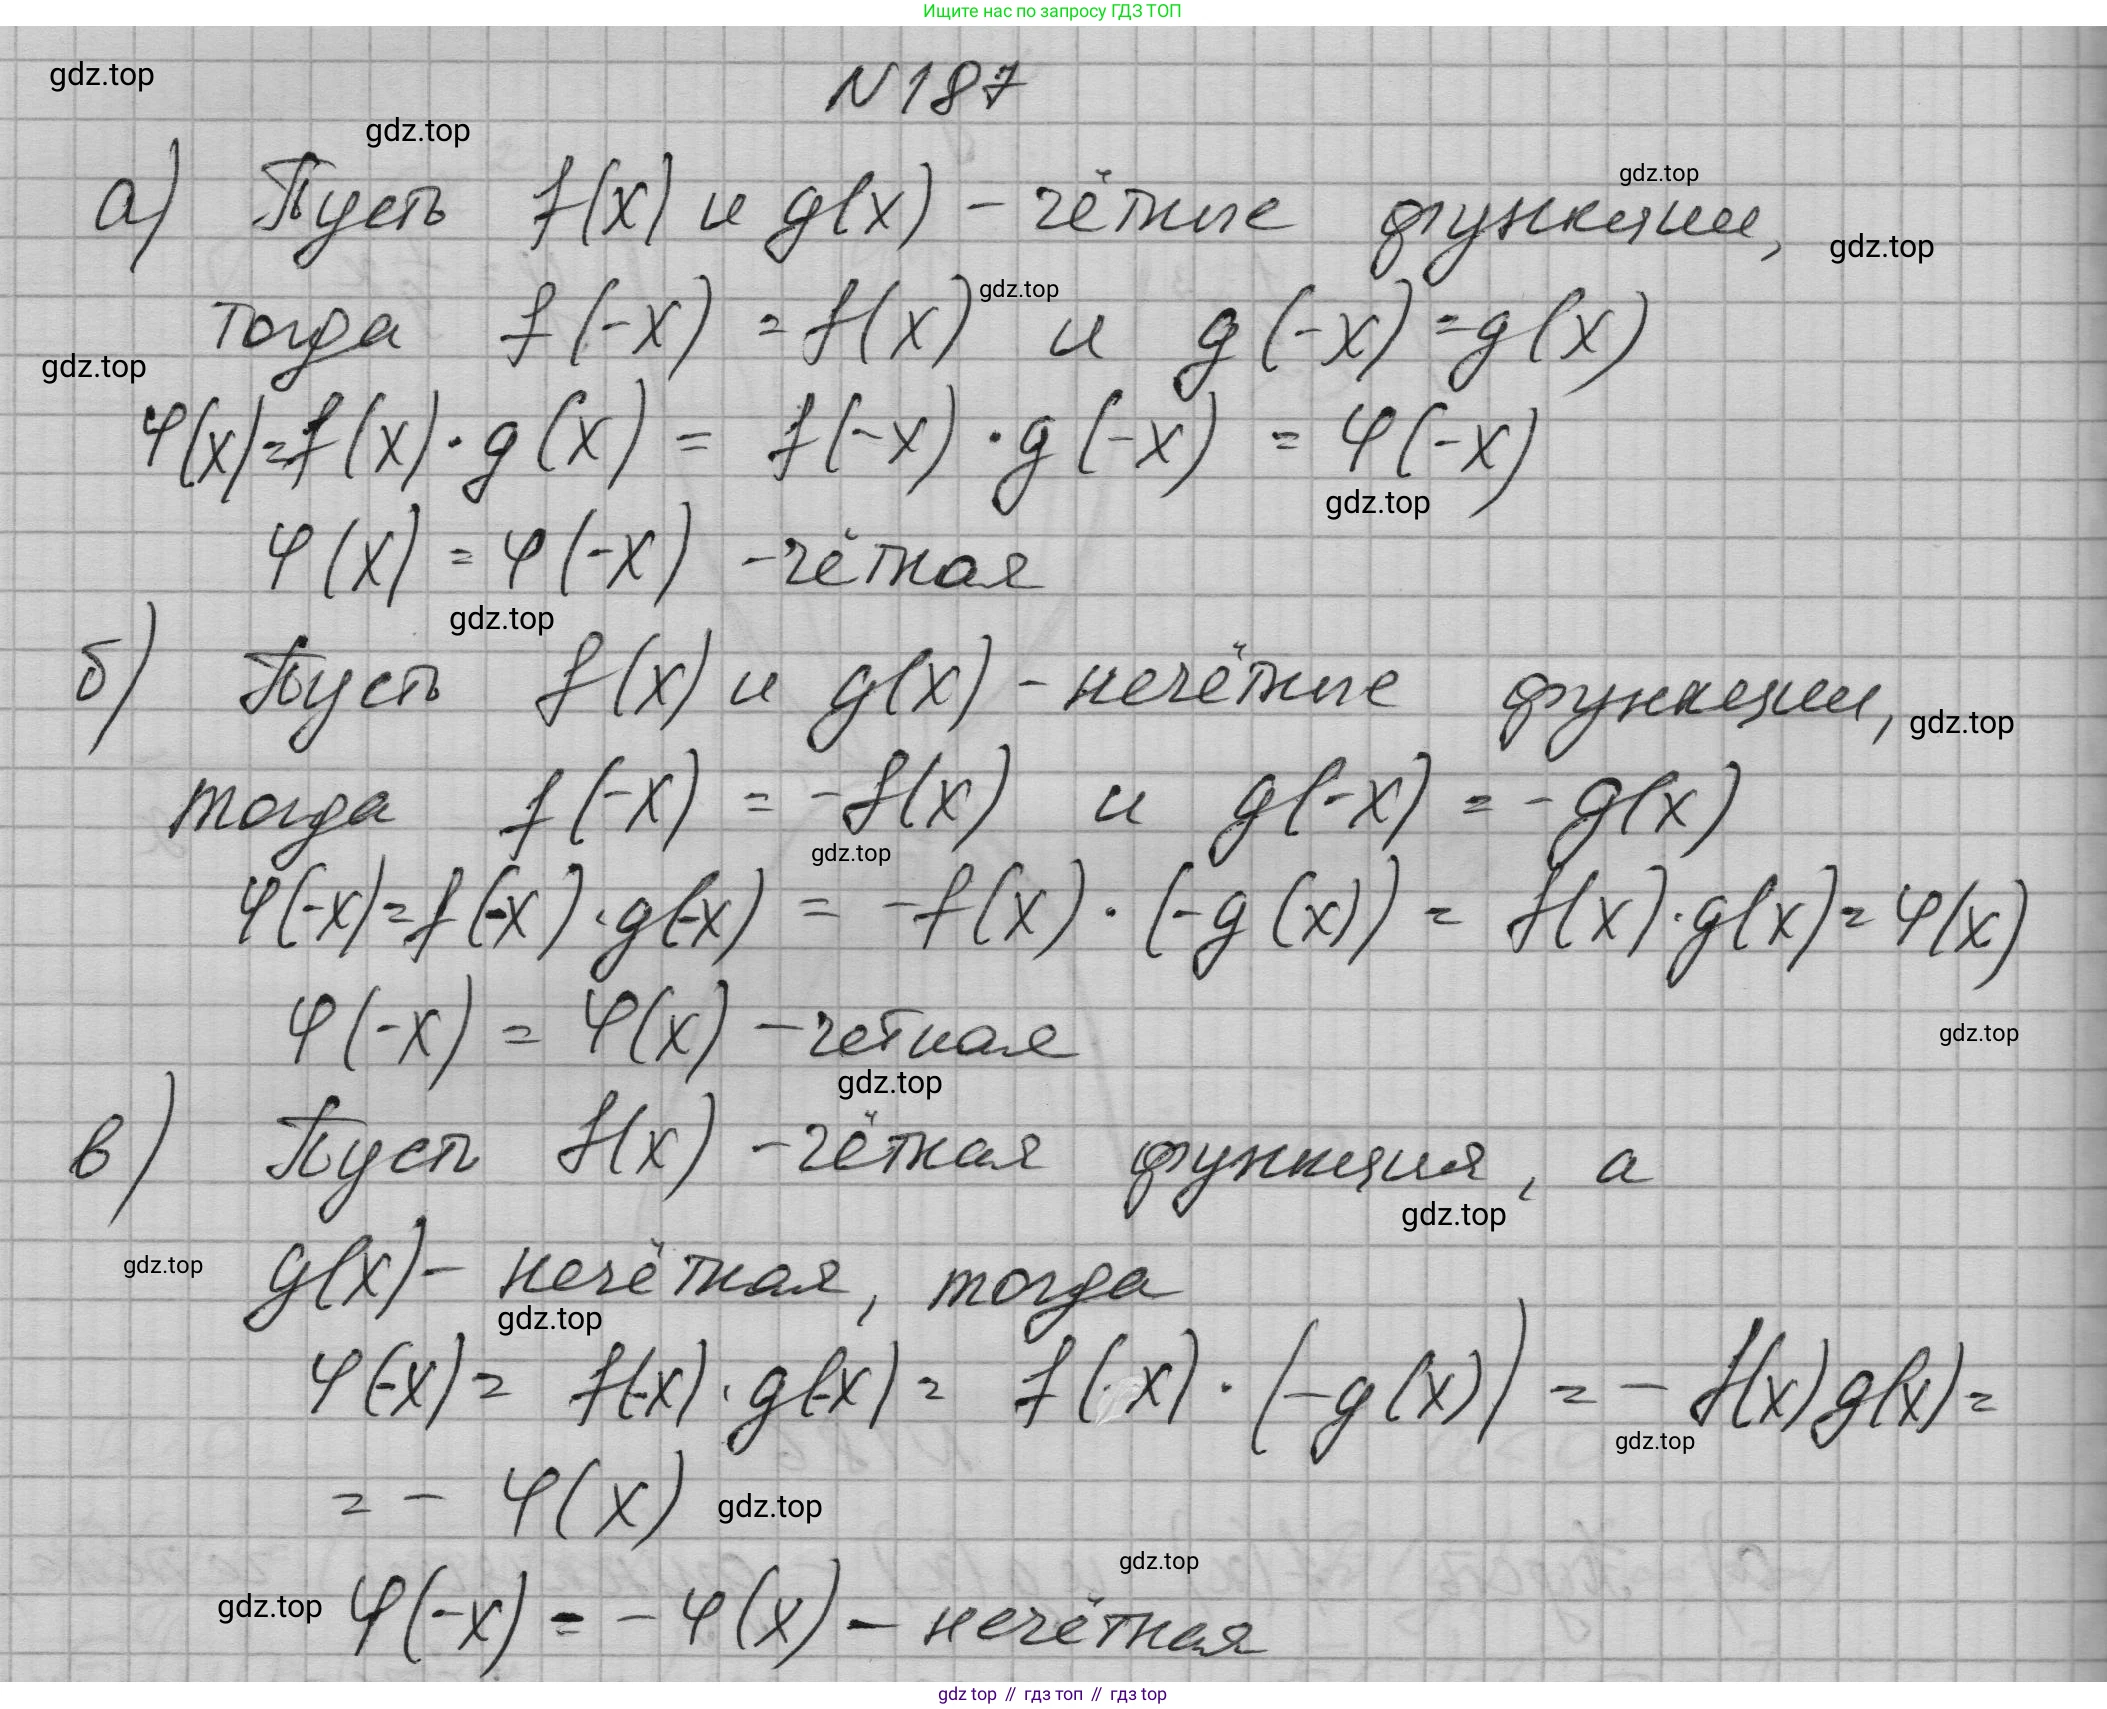 Ищите нас по запросу ГДЗ ТОП
gdz.top
N 187
gdz.top
а) Пусть f(x) и g(x) – чётные функции,
gdz.top
gdz.top
тогда f(-x) = f(x) и g(-x) = g(x)
gdz.top
gdz.top
φ(x) = f(x) · g(x) = f(-x) · g(-x) = φ(-x)
gdz.top
φ(x) = φ(-x) – чётная
gdz.top
б) Пусть f(x) и g(x) – нечётные функции,
gdz.top
тогда f(-x) = -f(x) и g(-x) = -g(x)
gdz.top
φ(-x) = f(-x) · g(-x) = -f(x) · (-g(x)) = f(x) · g(x) = φ(x)
φ(-x) = φ(x) – четная
gdz.top
gdz.top
в) Пусть f(x) – чётная функция, а
gdz.top
gdz.top
g(x) – нечётная, тогда
gdz.top
φ(-x) = f(-x) · g(-x) = f(x) · (-g(x)) = - f(x) g(x) =
gdz.top
= - φ(x)
gdz.top
gdz.top
gdz.top
φ(-x) = - φ(x) – нечётная
gdz top // гдз топ // гдз top